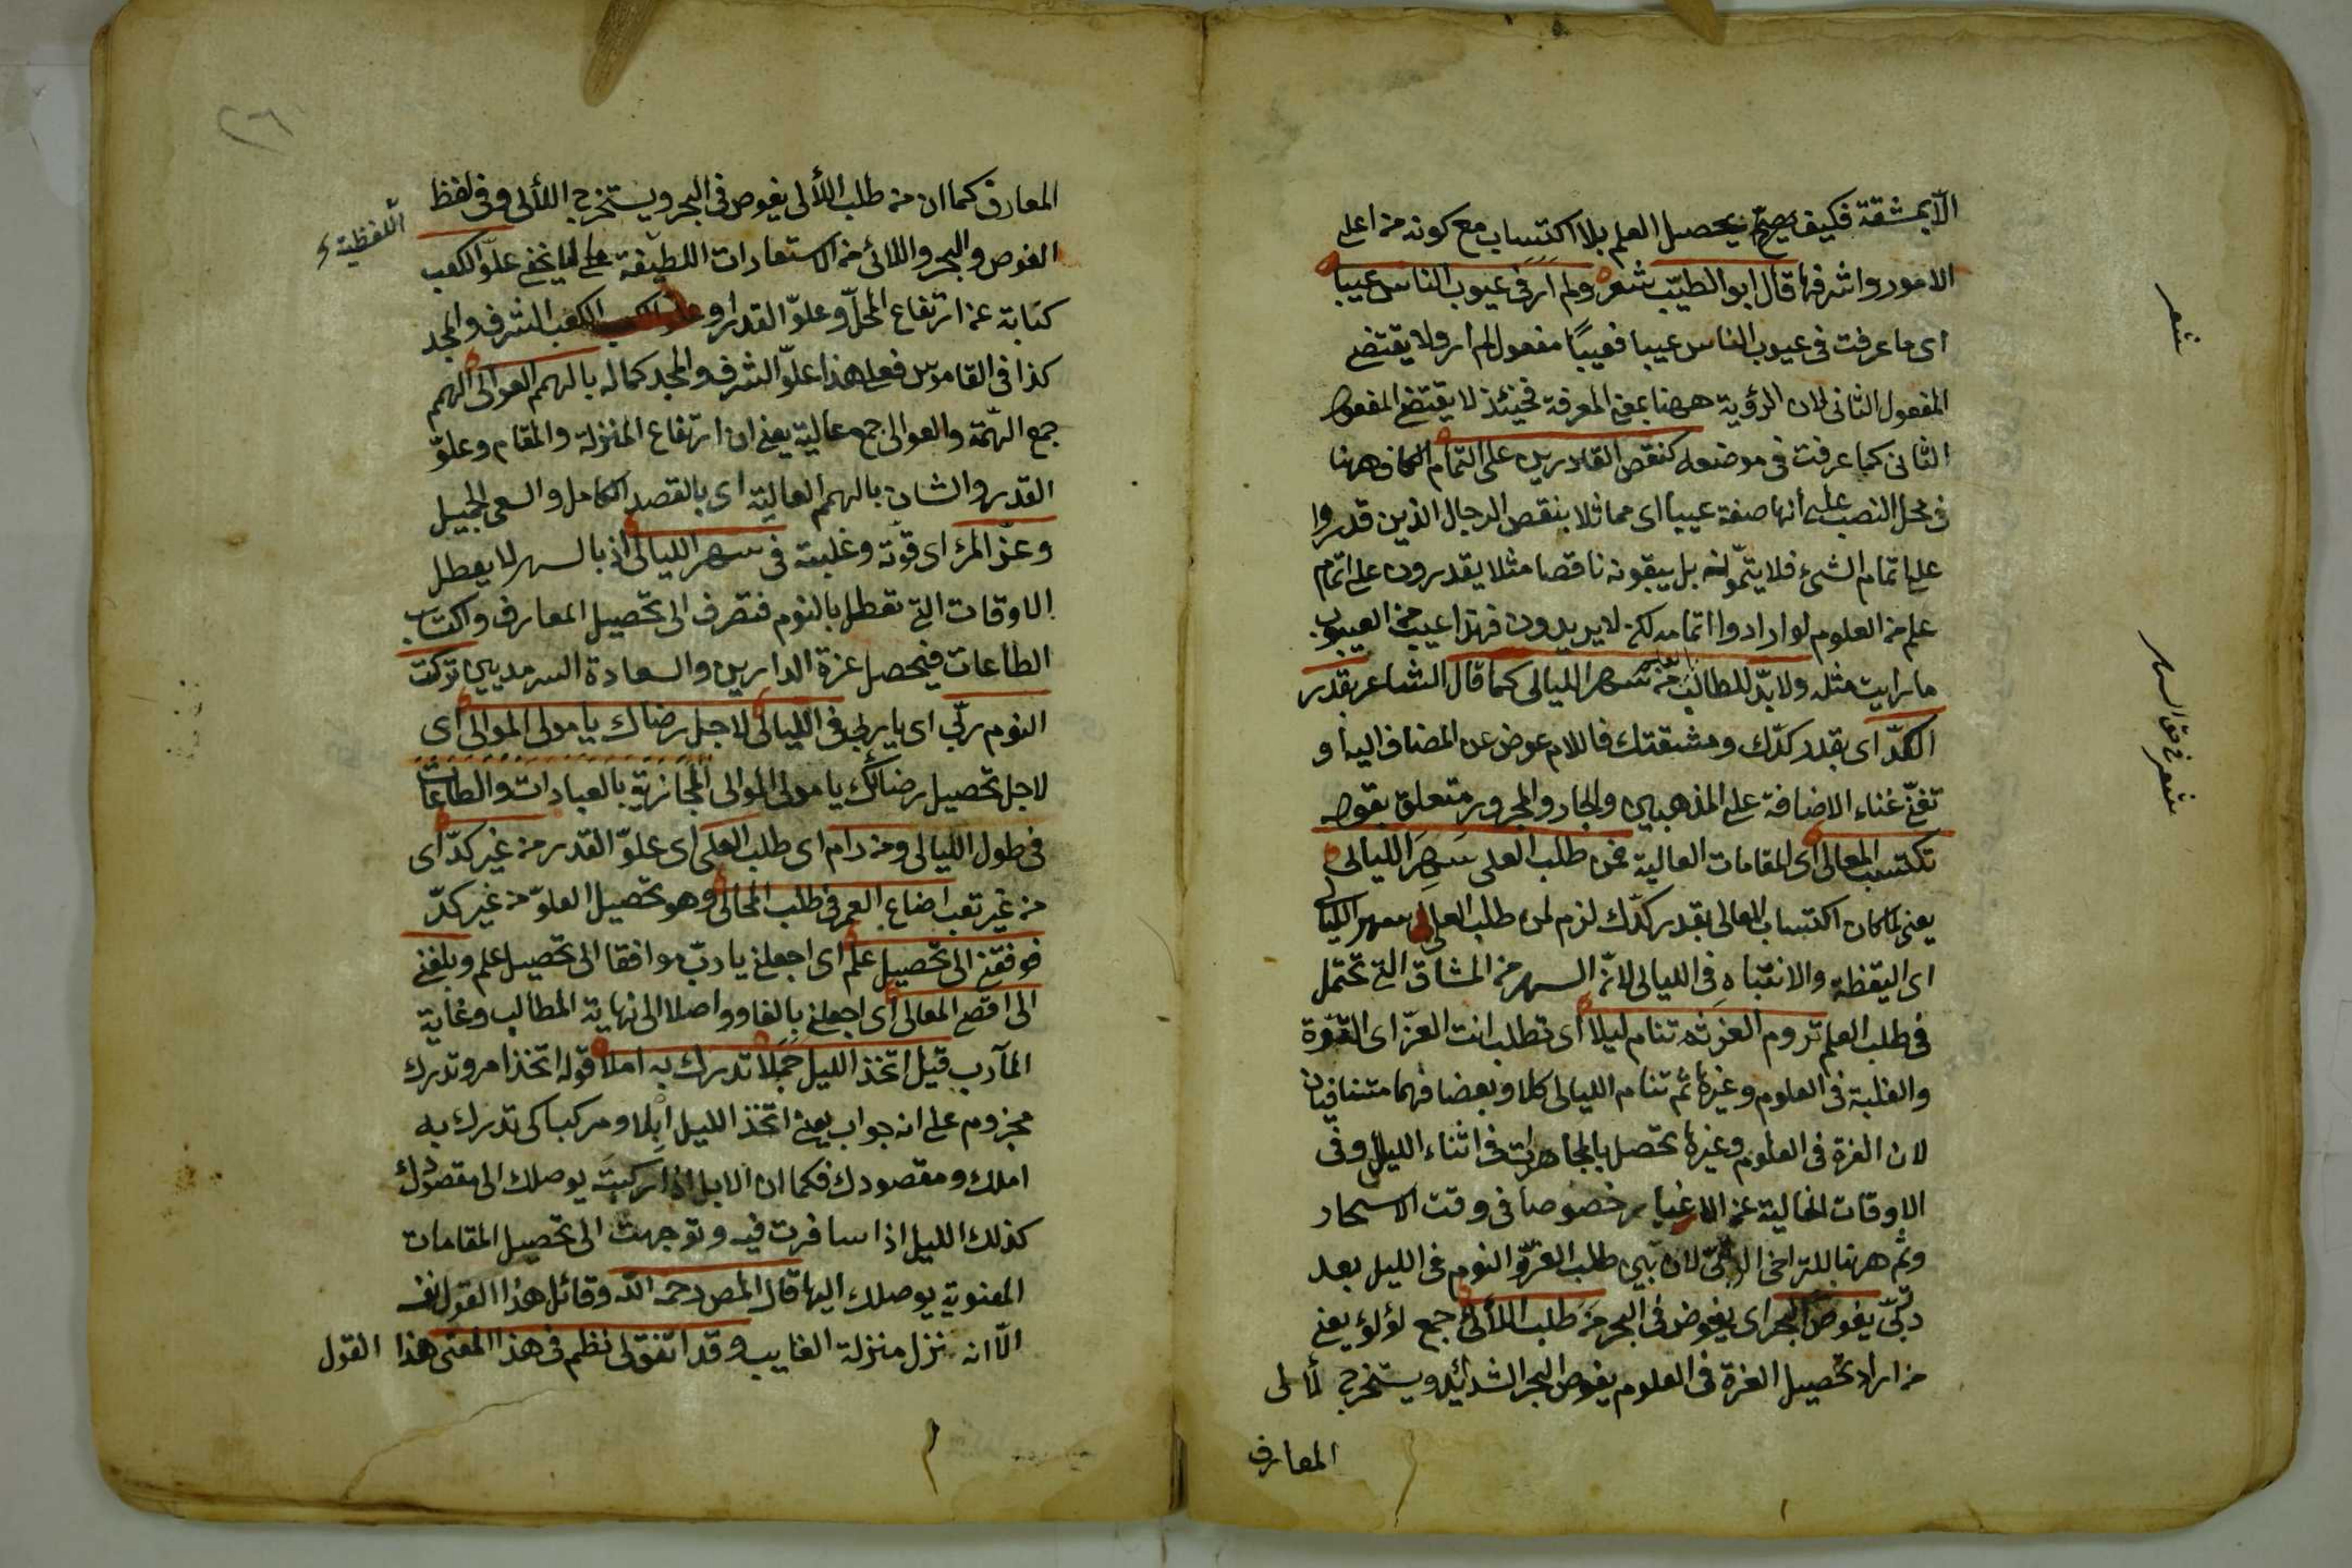 الّا بمشقة فكيف يصحّ تحصيل العلم بلا اكتساب مع كونه من اعلى
الامور واشرفها قال ابو الطيّب شعر ولم ار فى عيوب الناس عيبا
اى ما عرفت فى عيوب الناس عيبا فعيبًا مفعول لم ار ولا يقتضى
المفعول الثانى لان الرؤية ههنا بمعنى المعرفة فحينئذ لا يقتضى المفعول
الثانى كما عرفت فى موضعه كنقص القادرين على التمام الكاف ههنا
فى محل النصب على أنها صفة عيبا اى مماثلا بنقص الرجال الذين قدروا
على اتمام الشئ فلا يتمّونه بل يبقونه ناقصا مثلا يقدرون على اتمام
علم من العلوم لو ارادوا اتمامه لكن لا يريدون فهذا عيب من العيوب
ما رايت مثله ولا بدّ للطالب من سهر الليالى كما قال الشاعر بقدر
الكدّ اى بقدر كدّك ومشقتك فاللام عوض عن المضاف اليه أو
تغنى غناء الاضافة على المذهبين والجار والمجرور متعلق بقوله
تكتسب المعالى اى المقامات العالية فمن طلب العلى سَهِرَ الليالى
يعنى لما كان اكتساب المعالى بقدر كدّك لزم لمن طلب العلى سهر الليالى
اى اليقظة والانتباه فى الليالى لانّ السهر من المشاق التى تحتمل
فى طلب العلم تروم العز ثم تنام ليلا اى تطلب انت العزّ اى القوّة
والغلبة فى العلوم وغيرها ثم تنام الليالى كلا وبعضا فهما متنافيان
لان العزة فى العلوم وغيرها تحصل بالمجاهدات فى اثناء الليل وفى
الاوقات الخالية عن الاغيار خصوصا فى وقت الاسحار
وثم ههنا للتراخى الرتبىّ لان بين طلب العزّ والنوم فى الليل بعد
رتبىّ يغوص البحر اى يغوص فى البحر مَن طلب اللألى جمع لؤلؤ يعنى
من اراد تحصيل العزة فى العلوم يغوص البحر الشدائد ويستخرج لألى
المعارف
شعر
شعر فى حق السهر
٢٦
المعارف كما ان من طلب اللألى يغوص فى البحر ويستخرج اللألى وفى لفظ
الغوص والبحر واللألى من الاستعارات اللطيفة ما لا يخفى علوّ الكعب
اللفظية
كناية عن ارتفاع المحلّ وعلوّ القدر او الكعب الشرف والمجد
كذا فى القاموس فعلى هذا علوّ الشرف والمجد كماله بالهمم العوالى الهمم
جمع الهمّة والعوالى جمع عالية يعنى ان ارتفاع المنزلة والمقام وعلوّ
القدر والشان بالهمم العالية اى بالقصد الكامل والسعى الجميل
وعزّ المرء اى قوّته وغلبته فى سهر الليالى اذ بالسهر لا يعطل
الاوقات التى تعطل بالنوم فتصرف الى تحصيل المعارف واكتساب
الطاعات فيحصل عزة الدارين والسعادة السرمديين تركت
النوم ربّى اى يا ربى فى الليالى لاجل رضاك يا مولى الموالى اى
لاجل تحصيل رضائك يا مولى الموالى المجازية بالعبادات والطاعات
فى طول الليالى ومن رام اى طلب العلى اى علوّ القدر من غير كدّ اى
من غير تعب اضاع العمر فى طلب المحال وهو تحصيل العلوّ من غير كدّ
فوفقنى الى تحصيل علم اى اجعلنى يا ربّ موافقا الى تحصيل علم وبلغنى
الى اقصى المعالى اى اجعلنى بالغا وواصلا الى نهاية المطالب وغاية
المآرب قيل اتخذ الليل جملًا تدرك به املا قوله اتخذ امر وتدرك
مجزوم على انه جواب يعنى اتخذ الليل ابلا ومركبا كى تدرك به
املك ومقصودك فكما ان الابل اذا ركبت يوصلك الى مقصودك
كذلك الليل اذا سافرت فيه وتوجهت الى تحصيل المقامات
المعنوية يوصلك اليها قال المص رحمه الله وقائل هذا القول نفسه
الّا انه نزل منزلة الغايب وقد اتفق لى نظم فى هذا المعنى هذا القول